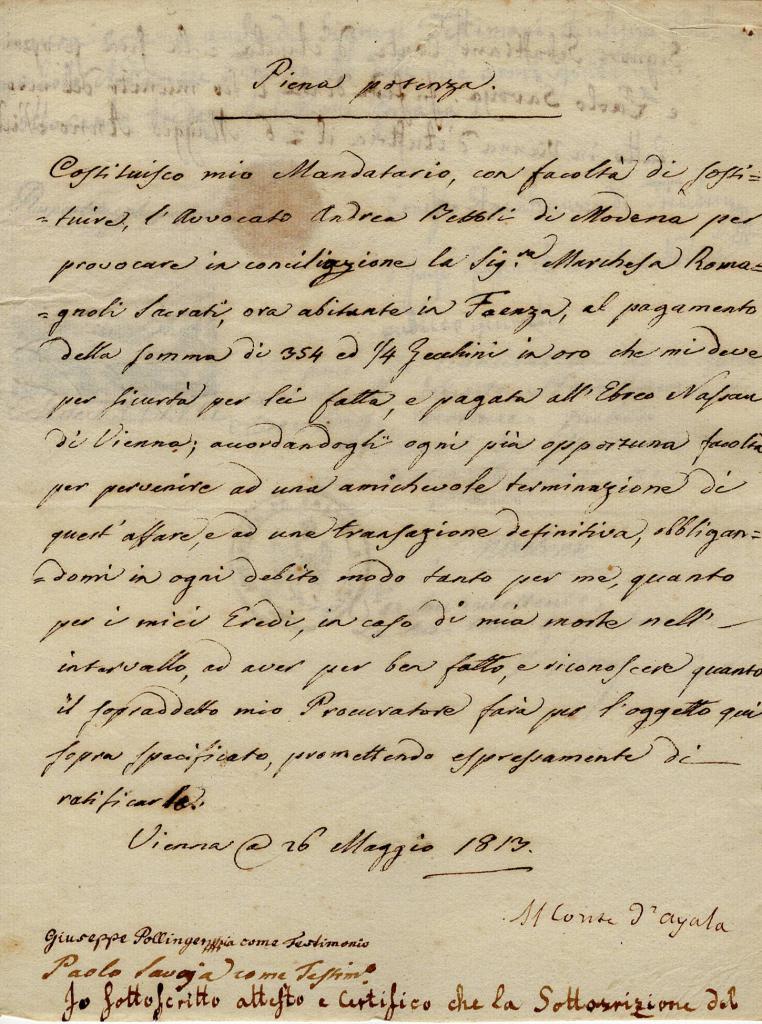 Piena potenza.
Costituisco mio Mandatario, con facoltà di sosti=
=tuire, l'Avvocato Andrea Bebbli di Modena per
provocare in conciliazione la Sig.ra Marchesa Roma=
=gnoli Sacrati, ora abitante in Faenza, al pagamento
della somma di 354 ed 1/4 Zecchini in oro che mi deve
per sicurtà per lei fatta, e pagata all'Ebreo Nassau
di Vienna; accordandogli ogni più opportuna facoltà
per pervenire ad una amichevole terminazione di
quest'affare, e ad une transazione definitiva, obbligan=
=domi in ogni debito modo tanto per me, quanto
per i miei Eredi, in caso di mia morte nell'
intervallo, ad aver per ben fatto, e riconoscere quanto
il sopraddetto mio Procuratore farà per l'oggetto qui
sopra specificato, promettendo espressamente di
ratificarlo.
Vienna @ 26 Maggio 1813.
Il Conte D'ayala
Giuseppe Pollinger come Testimonio
Paolo Savoja come Testimo
Io sottoscritto attesto e Certifico che la Sottoscrizione del